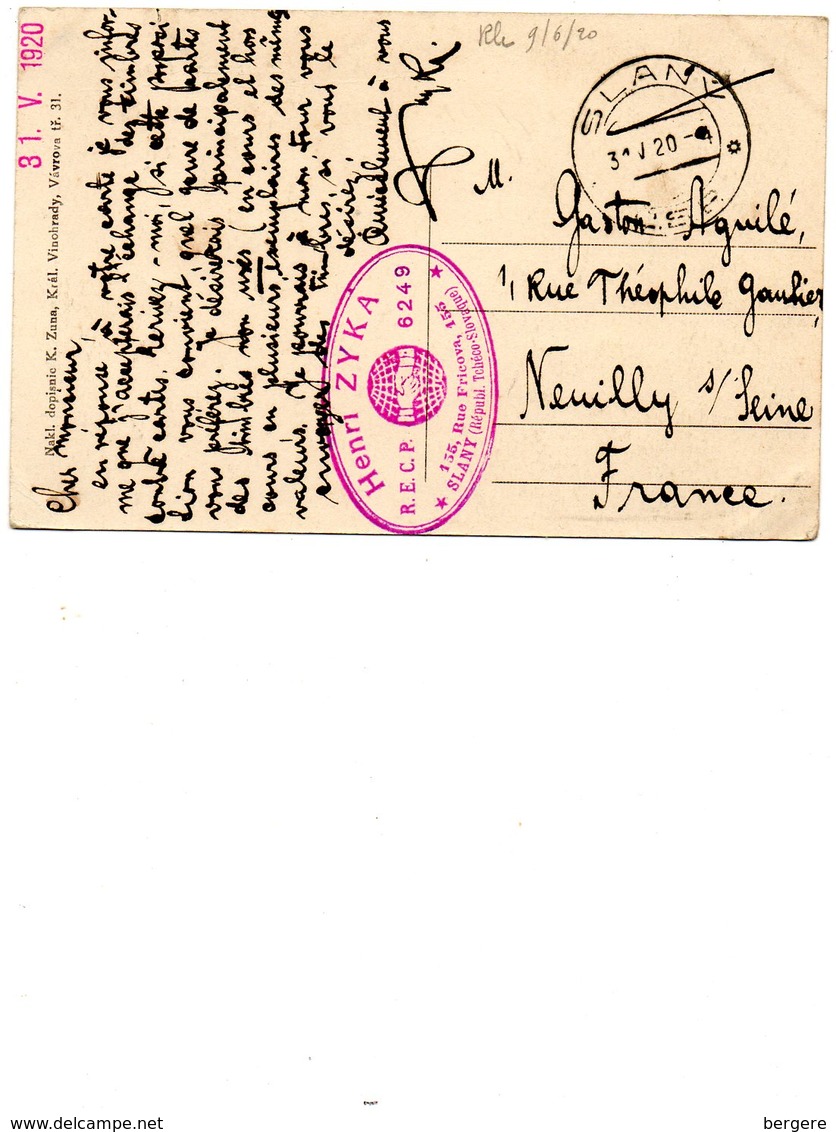 31. V. 1920
Nakl. dopisnic K. Zuna, Král. Vinohrady, Vávrova tř. 31.
Cher Monsieur,
en réponse à votre carte je vous infor-
me que j'accepterais l'échange des timbres
contre cartes. Ecrivez-moi, si cette propozi-
tion vous convient, quel genre de cartes
vous préférez. Je désirerais principalement
des timbres non usés (en cours et hors
cours en plusieurs exemplaires des mêmes
valeurs. Je pourrais à mon tour vous
envoyer des timbres, si vous le
désirez.
Amicalement à vous
Henri ZYKA
R. E. C. P. 6249
★ 155, Rue Fricova, 155 ★
SLANY (Républ. Tchéco-Slovaque)
9/6/20
SLANÝ
31 V 20 - 4
M.
Gaston Aguilé,
1, Rue Théophile Gautier,
Neuilly s/ Seine
France.
bergere